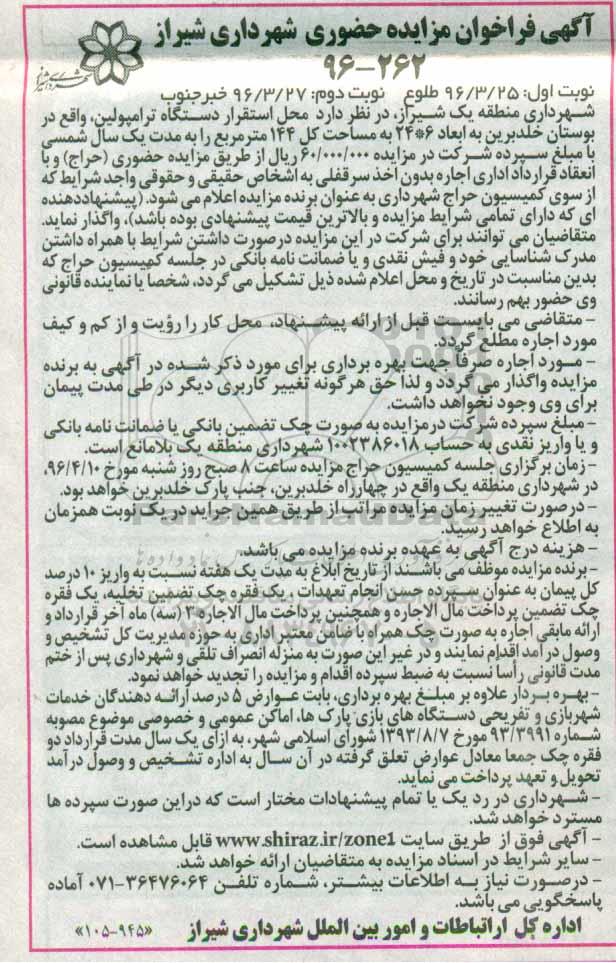 آگهی فراخوان مزایده حضوری شهرداری شیراز
۹۶-۲۶۲
شهرداری شیراز
نوبت اول: ۹۶/۳/۲۵ طلوع نوبت دوم: ۹۶/۳/۲۷ خبرجنوب
شهرداری منطقه یک شیراز، در نظر دارد محل استقرار دستگاه ترامپولین، واقع در
بوستان خلدبرین به ابعاد ۶*۲۴ به مساحت کل ۱۴۴ مترمربع را به مدت یک سال شمسی
با مبلغ سپرده شرکت در مزایده ۶۰/۰۰۰/۰۰۰ ریال از طریق مزایده حضوری (حراج) و با
انعقاد قرارداد اداری اجاره بدون اخذ سرقفلی به اشخاص حقیقی و حقوقی واجد شرایط که
از سوی کمیسیون حراج شهرداری به عنوان برنده مزایده اعلام می شود. (پیشنهاددهنده
ای که دارای تمامی شرایط مزایده و بالاترین قیمت پیشنهادی بوده باشد)، واگذار نماید.
متقاضیان می توانند برای شرکت در این مزایده درصورت داشتن شرایط با همراه داشتن
مدرک شناسایی خود و فیش نقدی و یا ضمانت نامه بانکی در جلسه کمیسیون حراج که
بدین مناسبت در تاریخ و محل اعلام شده ذیل تشکیل می گردد، شخصا یا نماینده قانونی
وی حضور بهم رسانند.
- متقاضی می بایست قبل از ارائه پیشنهاد، محل کار را رؤیت و از کم و کیف
مورد اجاره مطلع گردد.
- مورد اجاره صرفاً جهت بهره برداری برای مورد ذکر شده در آگهی به برنده
مزایده واگذار می گردد و لذا حق هرگونه تغییر کاربری دیگر در طی مدت پیمان
برای وی وجود نخواهد داشت.
- مبلغ سپرده شرکت درمزایده به صورت چک تضمین بانکی یا ضمانت نامه بانکی
و یا واریز نقدی به حساب ۱۰۰۲۳۸۶۰۱۸ شهرداری منطقه یک بلامانع است.
- زمان برگزاری جلسه کمیسیون حراج مزایده ساعت ۸ صبح روز شنبه مورخ ۹۶/۴/۱۰،
در شهرداری منطقه یک واقع در چهارراه خلدبرین، جنب پارک خلدبرین خواهد بود.
- درصورت تغییر زمان مزایده مراتب از طریق همین جراید در یک نوبت همزمان
به اطلاع خواهد رسید.
- هزینه درج آگهی به عهده برنده مزایده می باشد.
- برنده مزایده موظف می باشند از تاریخ ابلاغ به مدت یک هفته نسبت به واریز ۱۰ درصد
کل پیمان به عنوان سپرده حسن انجام تعهدات ، یک فقره چک تضمین تخلیه، یک فقره
چک تضمین پرداخت مال الاجاره و همچنین پرداخت مال الاجاره ۳ (سه) ماه آخر قرارداد و
ارائه مابقی اجاره به صورت چک همراه با ضامن معتبر اداری به حوزه مدیریت کل تشخیص و
وصول درآمد اقدام نمایند و در غیر این صورت به منزله انصراف تلقی و شهرداری پس از ختم
مدت قانونی رأسا نسبت به ضبط سپرده اقدام و مزایده را تجدید خواهد نمود.
- بهره بردار علاوه بر مبلغ بهره برداری، بابت عوارض ۵ درصد ارائه دهندگان خدمات
شهربازی و تفریحی دستگاه های بازی پارک ها، اماکن عمومی و خصوصی موضوع مصوبه
شماره ۹۳/۳۹۹۱ مورخ ۱۳۹۳/۸/۷ شورای اسلامی شهر، به ازای یک سال مدت قرارداد دو
فقره چک جمعا معادل عوارض تعلق گرفته در آن سال به اداره تشخیص و وصول درآمد
تحویل و تعهد پرداخت می نماید.
- شهرداری در رد یک یا تمام پیشنهادات مختار است که دراین صورت سپرده ها
مسترد خواهد شد.
- آگهی فوق از طریق سایت www.shiraz.ir/zone1 قابل مشاهده است.
- سایر شرایط در اسناد مزایده به متقاضیان ارائه خواهد شد.
- درصورت نیاز به اطلاعات بیشتر، شماره تلفن ۳۶۴۷۶۰۶۴-۰۷۱ آماده
پاسخگویی می باشد.
اداره کل ارتباطات و امور بین الملل شهرداری شیراز «۱۰۵-۹۴۵»